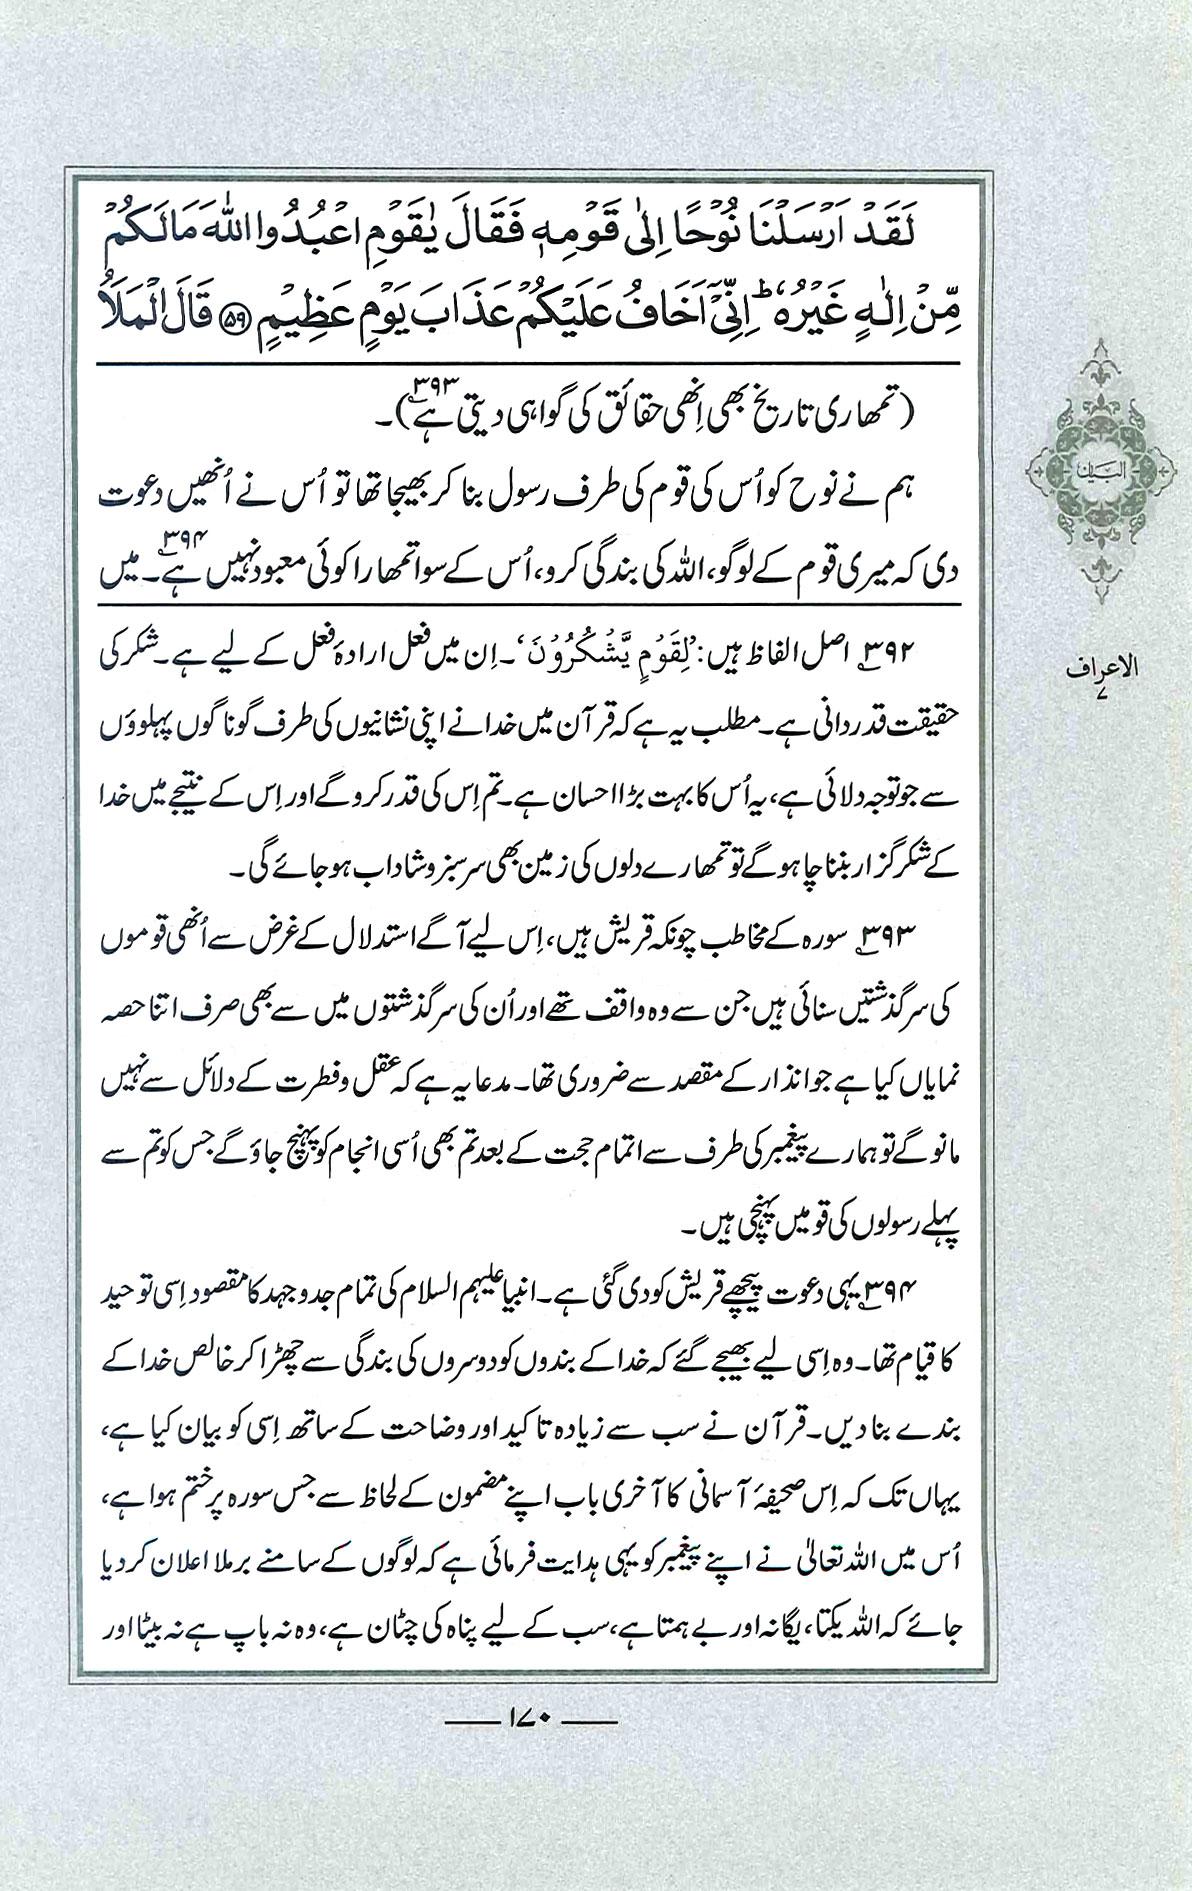 لَقَدْ اَرْسَلْنَا نُوْحًا اِلٰى قَوْمِهٖ فَقَالَ يٰقَوْمِ اعْبُدُوا اللّٰهَ مَا لَكُمْ
مِّنْ اِلٰهٍ غَيْرُهٗ ؕ اِنِّىْٓ اَخَافُ عَلَيْكُمْ عَذَابَ يَوْمٍ عَظِيْمٍ ﴿۵۹﴾ قَالَ الْمَلَاُ
(تمھاری تاریخ بھی اِنھی حقائق کی گواہی دیتی ہے۳۹۳)۔
ہم نے نوح کو اُس کی قوم کی طرف رسول بنا کر بھیجا تھا تو اُس نے اُنھیں دعوت
دی کہ میری قوم کے لوگو، اللہ کی بندگی کرو، اُس کے سوا تمھارا کوئی معبود نہیں ہے۳۹۴۔ میں
۳۹۲؎ اصل الفاظ ہیں: ’لِقَوْمٍ يَّشْكُرُوْنَ‘۔ اِن میں فعل ارادۂ فعل کے لیے ہے۔ شکر کی
حقیقت قدردانی ہے۔ مطلب یہ ہے کہ قرآن میں خدا نے اپنی نشانیوں کی طرف گوناگوں پہلوؤں
سے جو توجہ دلائی ہے، یہ اُس کا بہت بڑا احسان ہے۔ تم اِس کی قدر کرو گے اور اِس کے نتیجے میں خدا
کے شکر گزار بننا چاہو گے تو تمھارے دلوں کی زمین بھی سرسبز و شاداب ہو جائے گی۔
۳۹۳؎ سورہ کے مخاطب چونکہ قریش ہیں، اِس لیے آگے استدلال کے غرض سے اُنھی قوموں
کی سرگذشتیں سنائی ہیں جن سے وہ واقف تھے اور اُن کی سرگذشتوں میں سے بھی صرف اتنا حصہ
نمایاں کیا ہے جو انذار کے مقصد سے ضروری تھا۔ مدعا یہ ہے کہ عقل و فطرت کے دلائل سے نہیں
مانو گے تو ہمارے پیغمبر کی طرف سے اتمام حجت کے بعد تم بھی اُسی انجام کو پہنچ جاؤ گے جس کو تم سے
پہلے رسولوں کی قومیں پہنچی ہیں۔
۳۹۴؎ یہی دعوت پیچھے قریش کو دی گئی ہے۔ انبیا علیہم السلام کی تمام جدوجہد کا مقصود اِسی توحید
کا قیام تھا۔ وہ اِسی لیے بھیجے گئے کہ خدا کے بندوں کو دوسروں کی بندگی سے چھڑا کر خالص خدا کے
بندے بنا دیں۔ قرآن نے سب سے زیادہ تاکید اور وضاحت کے ساتھ اِسی کو بیان کیا ہے،
یہاں تک کہ اِس صحیفۂ آسمانی کا آخری باب اپنے مضمون کے لحاظ سے جس سورہ پر ختم ہوا ہے،
اُس میں اللہ تعالیٰ نے اپنے پیغمبر کو یہی ہدایت فرمائی ہے کہ لوگوں کے سامنے برملا اعلان کر دیا
جائے کہ اللہ یکتا، یگانہ اور بے ہمتا ہے، سب کے لیے پناہ کی چٹان ہے، وہ نہ باپ ہے نہ بیٹا اور
البیان
الاعراف
۷
۱۷۰